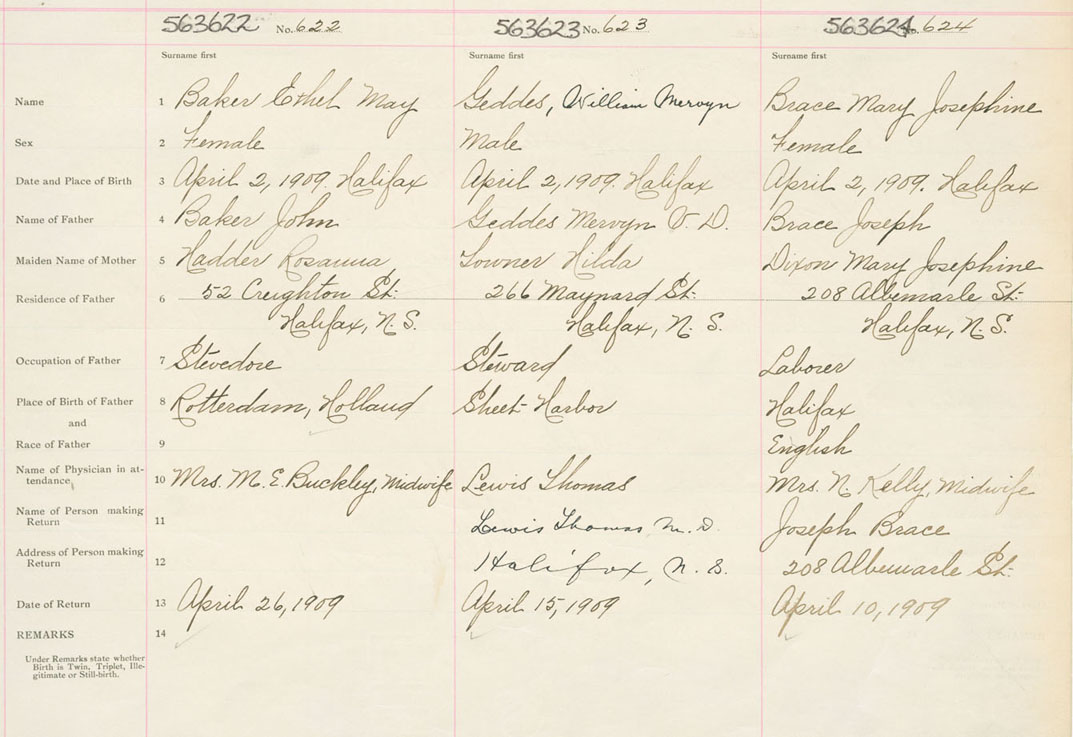 563622 No. 622 563623 No. 623 563624 No. 624
Surname first Surname first Surname first
Name 1 Baker Ethel May Geddes, William Mervyn Brace Mary Josephine
Sex 2 Female Male Female
Date and Place of Birth 3 April 2, 1909. Halifax April 2, 1909. Halifax April 2, 1909. Halifax
Name of Father 4 Baker John Geddes Mervyn V. D. Brace Joseph
Maiden Name of Mother 5 Hadder Rosanna Towner Hilda Dixon Mary Josephine
Residence of Father 6 52 Creighton St: 266 Maynard St: 208 Albemarle St:
Halifax, N. S. Halifax, N. S. Halifax, N. S.
Occupation of Father 7 Stevedore Steward Laborer
Place of Birth of Father 8 Rotterdam, Holland Sheet Harbor Halifax
and
Race of Father 9 English
Name of Physician in at-
tendance 10 Mrs. M. E. Buckley, Midwife Lewis Thomas Mrs. N. Kelly, Midwife
Name of Person making
Return 11 Lewis Thomas M. D. Joseph Brace
Address of Person making
Return 12 Halifax, N. S. 208 Albemarle St:
Date of Return 13 April 26, 1909 April 15, 1909 April 10, 1909
REMARKS 14
Under Remarks state whether
Birth is Twin, Triplet, Ille-
gitimate or Still-birth.